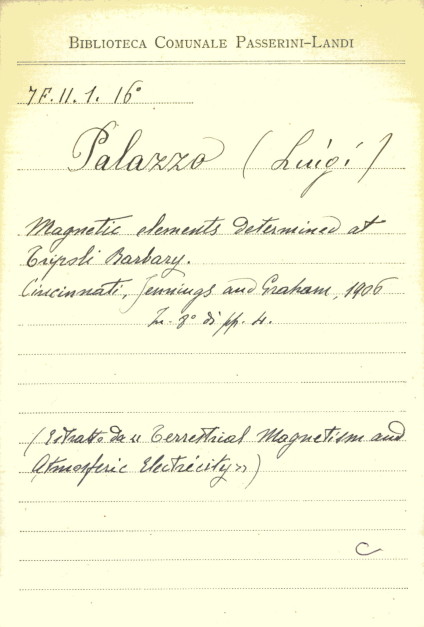 BIBLIOTECA COMUNALE PASSERINI-LANDI
7F. II. 1. 16°
Palazzo (Luigi)
Magnetic elements determined at
Tripoli Barbary.
Cincinnati, Jennings and Graham, 1906
In. 8° di pp. 4.
(Estratto da « Terrestrial Magnetism and
Atmosferic Electricity »)
C